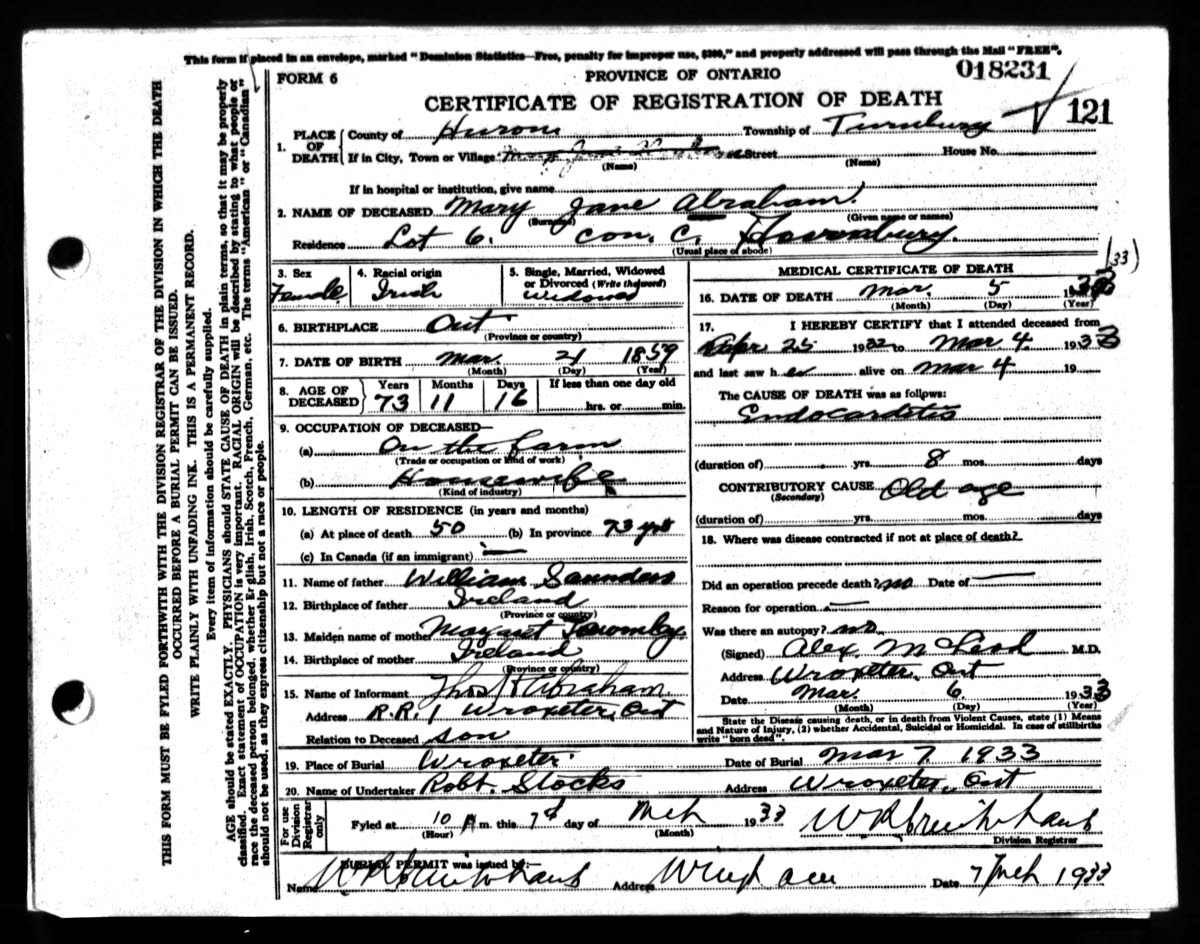 This form if placed in an envelope, marked "Dominion Statistics—Free, penalty for improper use, $300," and properly addressed will pass through the Mail "FREE".
FORM 6
PROVINCE OF ONTARIO
018231
CERTIFICATE OF REGISTRATION OF DEATH
121
1. PLACE OF DEATH County of Huron Township of Turnbury
If in City, Town or Village Street House No.
(Name) (Name)
If in hospital or institution, give name
2. NAME OF DECEASED Mary Jane Abraham
(Surname) (Given name or names)
Residence Lot 6. Con. C.
(Usual place of abode)
(33)
3. Sex Female
4. Racial origin Irish
5. Single, Married, Widowed or Divorced (Write the word) Widowed
6. BIRTHPLACE Ont
(Province or country)
7. DATE OF BIRTH Mar. 21 1859
(Month) (Day) (Year)
8. AGE OF DECEASED Years 73 Months 11 Days 16 If less than one day old
hrs. or min.
9. OCCUPATION OF DECEASED—
(a) On the farm
(Trade or occupation or kind of work)
(b) Housewife
(Kind of industry)
10. LENGTH OF RESIDENCE (in years and months)
(a) At place of death 50 (b) In province 73 yrs
(c) In Canada (if an immigrant) —
11. Name of father William Saunders
12. Birthplace of father Ireland
(Province or country)
13. Maiden name of mother Margaret
14. Birthplace of mother Ireland
(Province or country)
15. Name of Informant Thos Abraham
Address R.R. 1 Wroxeter, Ont
Relation to Deceased son
MEDICAL CERTIFICATE OF DEATH
16. DATE OF DEATH Mar 5
(Month) (Day) (Year)
17. I HEREBY CERTIFY that I attended deceased from
Apr 25 1932 to Mar 4 1933
and last saw her alive on Mar 4 19
The CAUSE OF DEATH was as follows:
Endocarditis
(duration of) yrs. 8 mos. days
CONTRIBUTORY CAUSE Old age
(Secondary)
(duration of) yrs. mos. days
18. Where was disease contracted if not at place of death?
Did an operation precede death? no Date of —
Reason for operation —
Was there an autopsy? no
(Signed) Alex. McLeod M.D.
Address Wroxeter, Ont
Date Mar. 6 1933
(Month) (Day) (Year)
State the Disease causing death, or in death from Violent Causes, state (1) Means
and Nature of Injury, (2) whether Accidental, Suicidal or Homicidal. In case of stillbirths
write "born dead".
19. Place of Burial Wroxeter Date of Burial Mar 7. 1933
20. Name of Undertaker Robt. Stocks Address Wroxeter, Ont
For use Division Registrar only
Fyled at 10 A m. this 7th day of Mch 1933
(Hour) (Month) Division Registrar
BURIAL PERMIT was issued by:
Name Address Wingham Date 7 Mch 1933
THIS FORM MUST BE FYLED FORTHWITH WITH THE DIVISION REGISTRAR OF THE DIVISION IN WHICH THE DEATH
OCCURRED BEFORE A BURIAL PERMIT CAN BE ISSUED.
WRITE PLAINLY WITH UNFADING INK. THIS IS A PERMANENT RECORD.
Every item of information should be carefully supplied.
AGE should be stated EXACTLY. PHYSICIANS should STATE CAUSE OF DEATH in plain terms, so that it may be properly
classified. Exact statement of OCCUPATION is very important. RACIAL ORIGIN will be described by stating to what people or
race the deceased person belonged, whether English, Irish, Scotch, French, German, etc. The terms "American" or "Canadian"
should not be used, as they express citizenship but not a race or people.